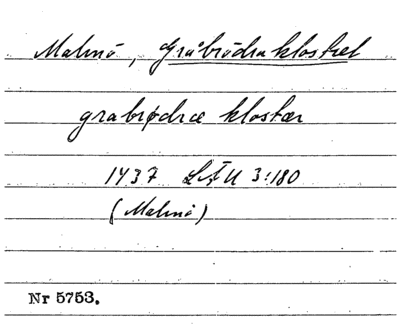 Malmö, Gråbrödraklostret
grabrødræ klostær
1437 LÄU 3:180
(Malmö)
Nr 5753.